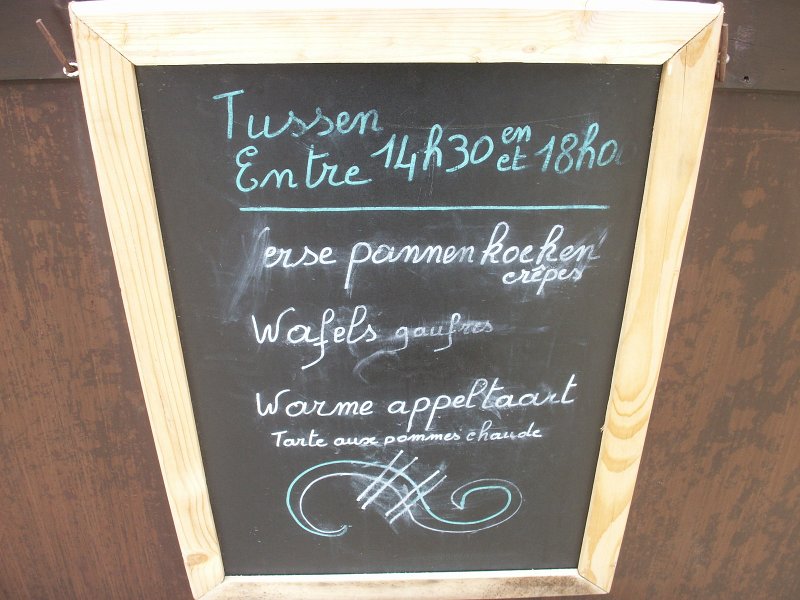 Tussen
Entre 14h30 en et 18h0
erse pannenkoeken
crêpes
Wafels gaufres
Warme appeltaart
Tarte aux pommes chaude